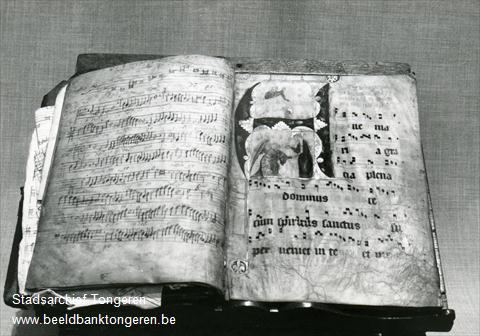 A
ue ma
ri a gra
tia plena
dominus te
cum spiritus sanctus
per ueniet in te et uir
Stadsarchief Tongeren
www.beeldbanktongeren.be